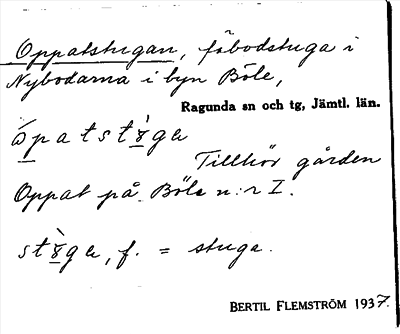 Oppatstugan, fäbodstuga i
Nybodarna i byn Böle,
Ragunda sn och tg, Jämtl. län.
Tillhör gården
Oppat på Böle n:r I.
f. = stuga.
BERTIL FLEMSTRÖM 1937.